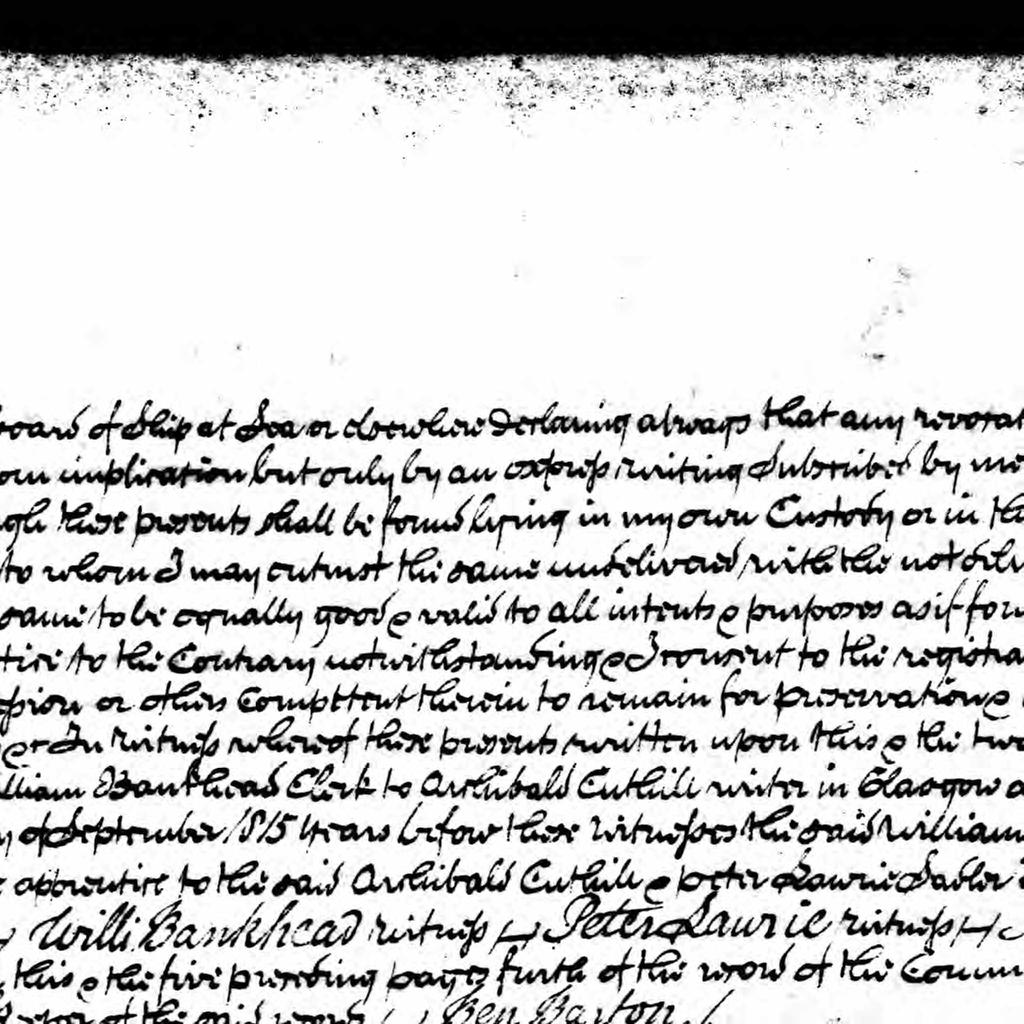 board of Ship at Sea or elsewhere Declaring always that any revocat
om implication but only by an express writing Subscribed by me
ugh these presents shall be found lying in my own Custody or in th
to whom I may entrust the same undelivered with the not deli
same to be equally good & valid to all intents & purposes as if for
tice to the Contrary notwithstanding & I consent to the registra
ession or others Competent therein to remain for preservation &
&c In Witness whereof these presents written upon this & the two
illiam Bankhead Clerk to Archibald Cuthill writer in Glasgow a
y of September 1815 Years before these Witnesses the said William
apprentice to the said Archibald Cuthill & peter Lawrie Sadler
Willi Bankhead witness Peter Lawrie witness
this & the five preceding pages furth of the record of the Comm
of the said record Ben Barton